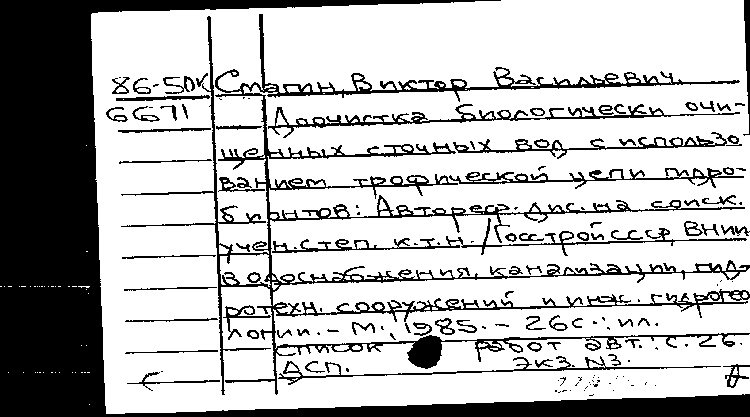 86-5ДК Смагин, Виктор Васильевич.
6671 Доочистка биологически очи-
щенных сточных вод с использо
ванием трофической цепи гидро-
бионтов: Автореф. дис. на соиск.
учен. степ. к.т.н. / Госстрой СССР, ВНИИ
водоснабжения, канализации, гид-
ротехн. сооружений и инж. гидрогео
логии. - М., 1985. - 26 с.: ил.
Список работ авт.: с. 26.
ДСП. Экз. N3.